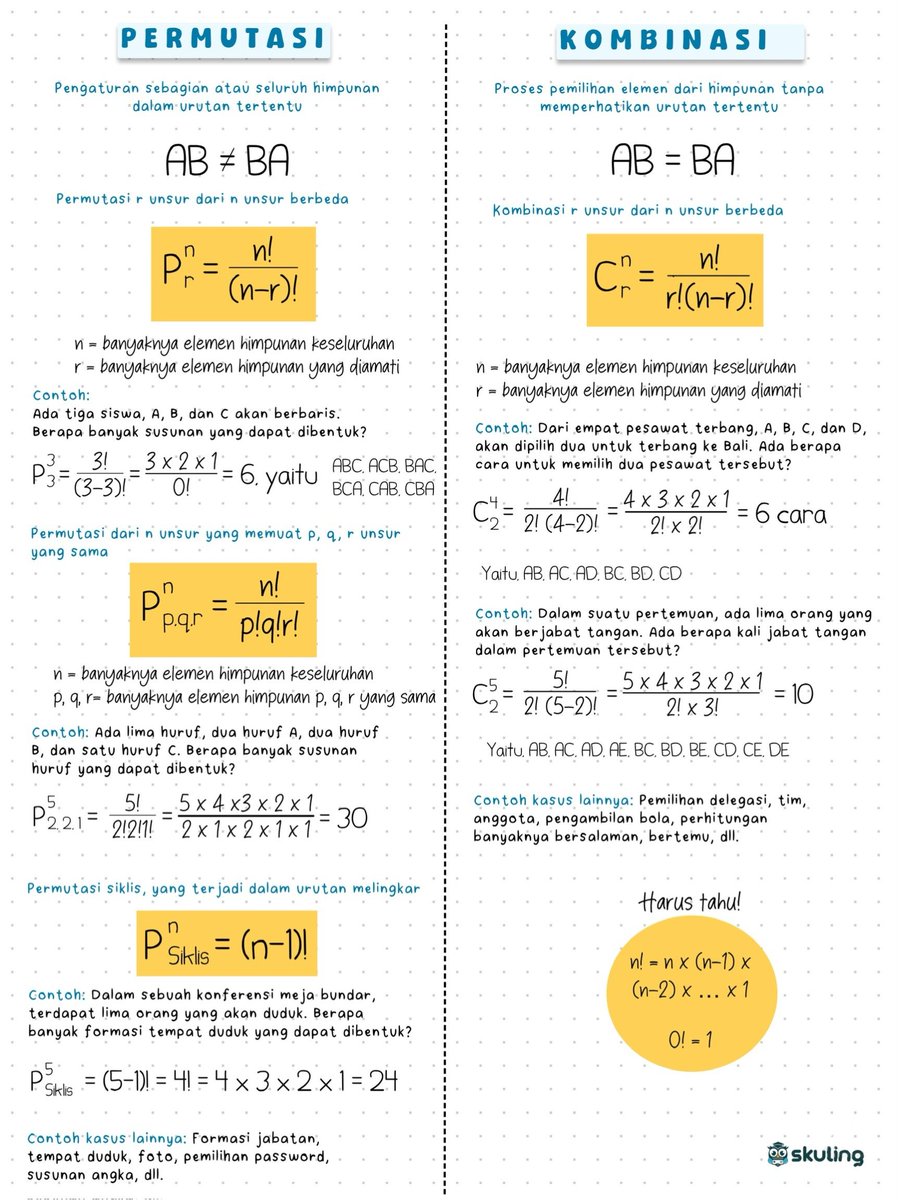 PERMUTASI
Pengaturan sebagian atau seluruh himpunan
dalam urutan tertentu
AB ≠ BA
Permutasi r unsur dari n unsur berbeda
P^n_r = n!/(n-r)!
n = banyaknya elemen himpunan keseluruhan
r = banyaknya elemen himpunan yang diamati
Contoh:
Ada tiga siswa, A, B, dan C akan berbaris.
Berapa banyak susunan yang dapat dibentuk?
P^3_3 = 3!/(3-3)! = (3 x 2 x 1)/0! = 6, yaitu ABC, ACB, BAC,
BCA, CAB, CBA
Permutasi dari n unsur yang memuat p, q, r unsur
yang sama
P^n_p,q,r = n!/p!q!r!
n = banyaknya elemen himpunan keseluruhan
p, q, r= banyaknya elemen himpunan p, q, r yang sama
Contoh: Ada lima huruf, dua huruf A, dua huruf
B, dan satu huruf C. Berapa banyak susunan
huruf yang dapat dibentuk?
P^5_2,2,1 = 5!/2!2!1! = (5 x 4 x3 x 2 x 1)/(2 x 1 x 2 x 1 x 1) = 30
Permutasi siklis, yang terjadi dalam urutan melingkar
P^n_Siklis = (n-1)!
Contoh: Dalam sebuah konferensi meja bundar,
terdapat lima orang yang akan duduk. Berapa
banyak formasi tempat duduk yang dapat dibentuk?
P^5_Siklis = (5-1)! = 4! = 4 x 3 x 2 x 1 = 24
Contoh kasus lainnya: Formasi jabatan,
tempat duduk, foto, pemilihan password,
susunan angka, dll.
KOMBINASI
Proses pemilihan elemen dari himpunan tanpa
memperhatikan urutan tertentu
AB = BA
Kombinasi r unsur dari n unsur berbeda
C^n_r = n!/r!(n-r)!
n = banyaknya elemen himpunan keseluruhan
r = banyaknya elemen himpunan yang diamati
Contoh: Dari empat pesawat terbang, A, B, C, dan D,
akan dipilih dua untuk terbang ke Bali. Ada berapa
cara untuk memilih dua pesawat tersebut?
C^4_2 = 4!/2! (4-2)! = (4 x 3 x 2 x 1)/(2! x 2!) = 6 cara
Yaitu, AB, AC, AD, BC, BD, CD
Contoh: Dalam suatu pertemuan, ada lima orang yang
akan berjabat tangan. Ada berapa kali jabat tangan
dalam pertemuan tersebut?
C^5_2 = 5!/2! (5-2)! = (5 x 4 x 3 x 2 x 1)/(2! x 3!) = 10
Yaitu, AB, AC, AD, AE, BC, BD, BE, CD, CE, DE
Contoh kasus lainnya: Pemilihan delegasi, tim,
anggota, pengambilan bola, perhitungan
banyaknya bersalaman, bertemu, dll.
Harus tahu!
n! = n x (n-1) x
(n-2) x ... x 1
0! = 1
skuling